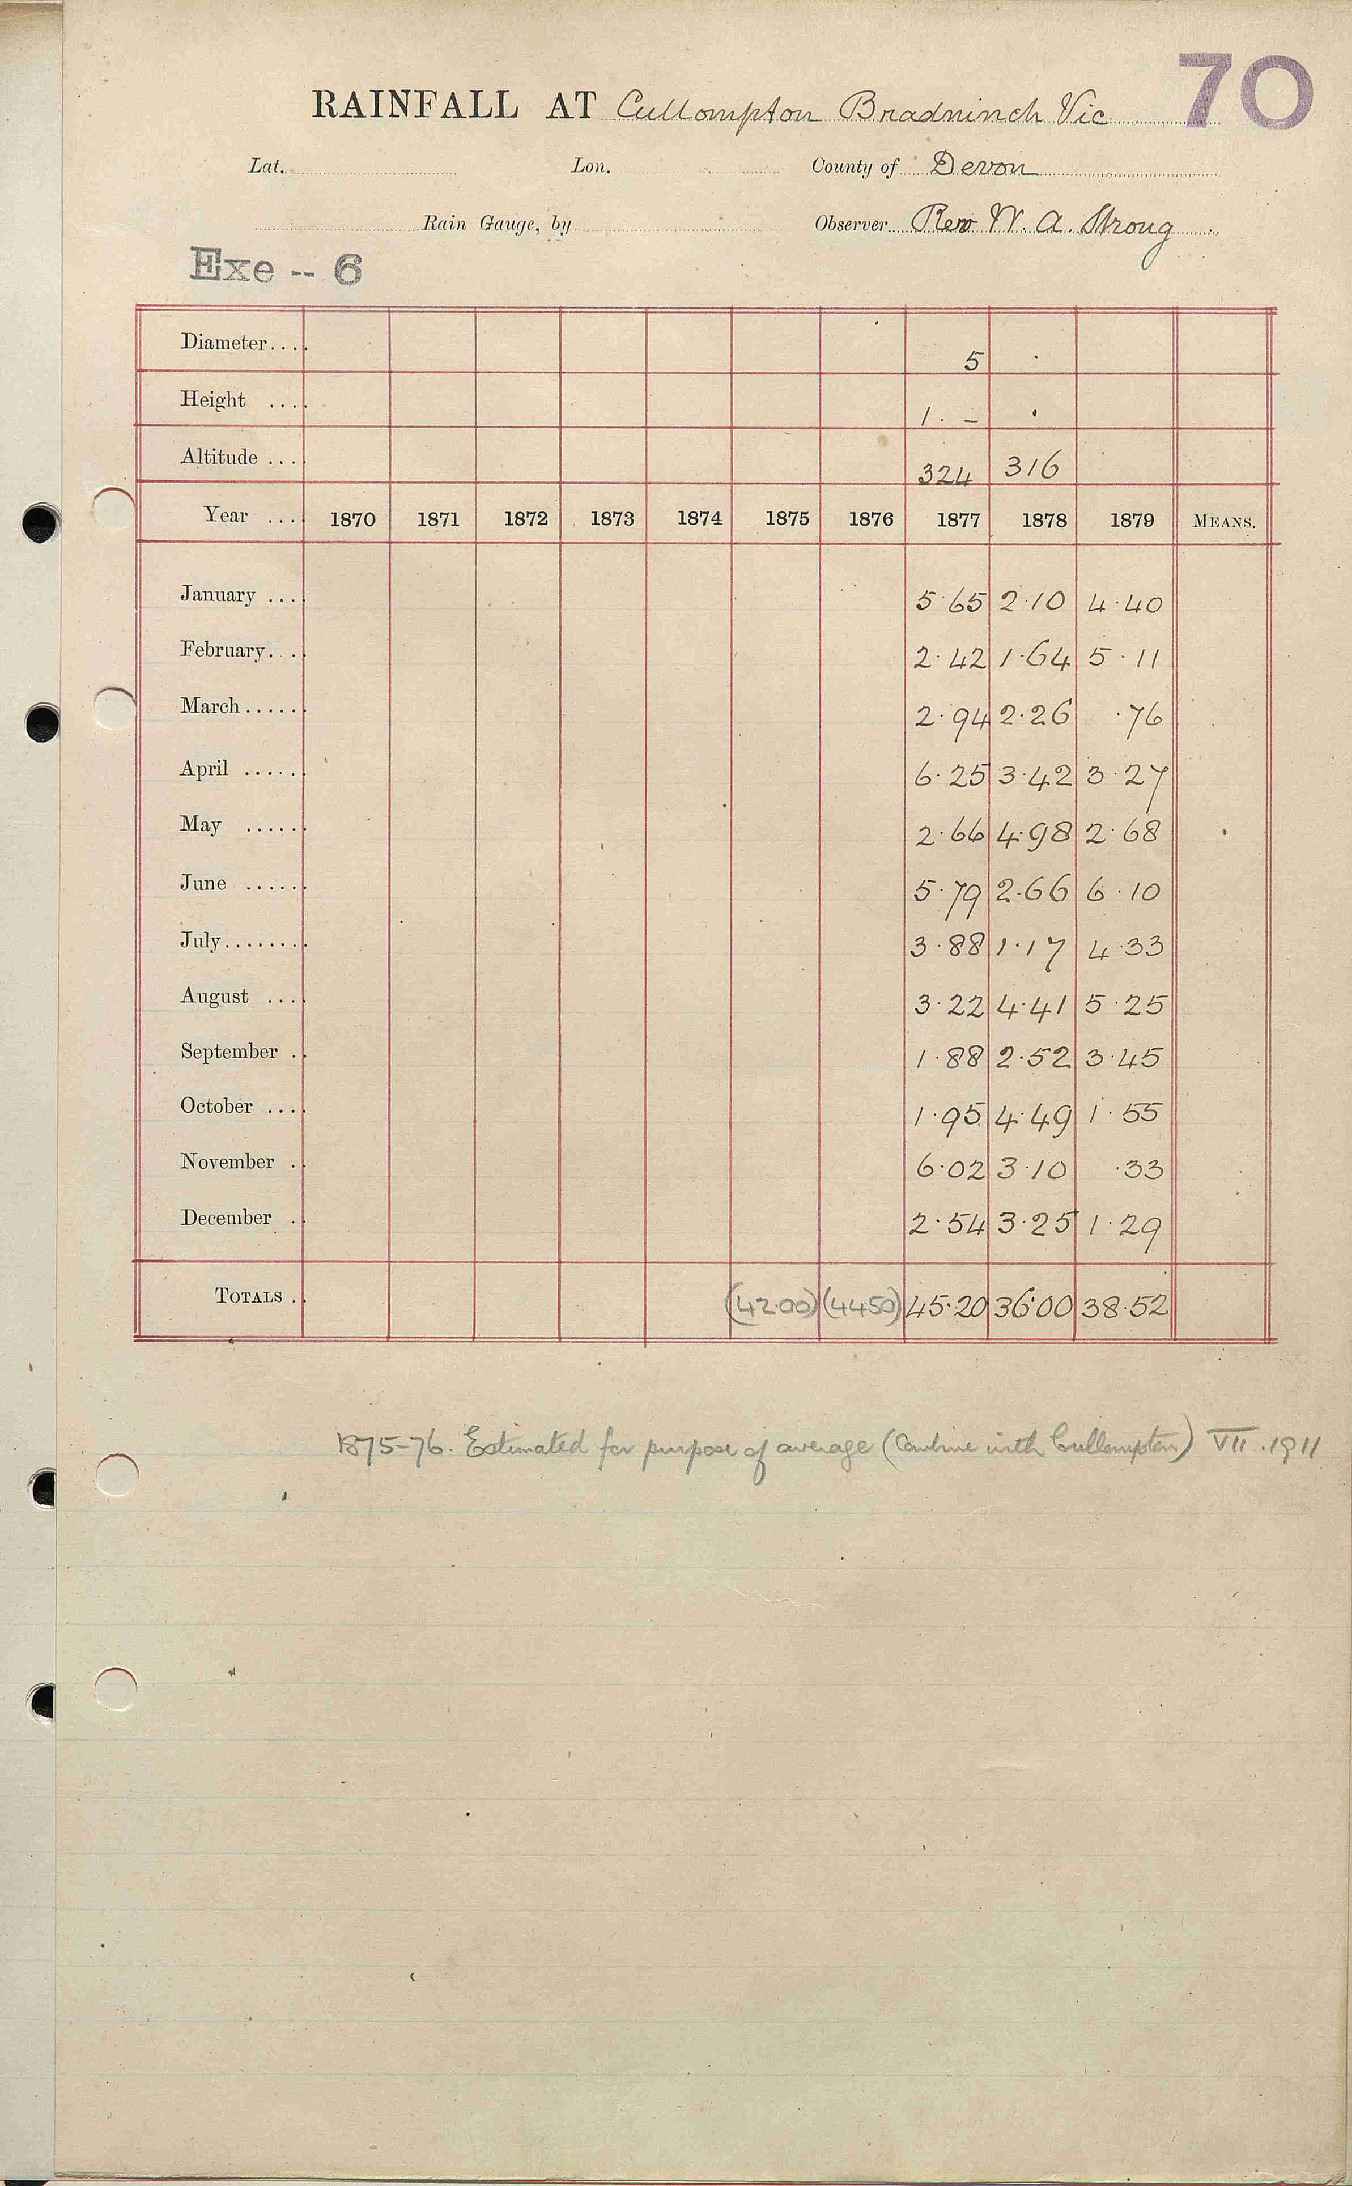 70
RAINFALL AT Cullompton Bradninch Vic
Lat. Lon. County of Devon
Rain Gauge, by Observer Rev W. A. Strong
Exe -- 6
Diameter.... 5 ·
Height .... 1 · – ·
Altitude .... 324 316
Year .... 1870 1871 1872 1873 1874 1875 1876 1877 1878 1879 MEANS.
January .... 5·65 2·10 4·40
February.... 2·42 1·64 5·11
March...... 2·94 2·26 ·76
April ...... 6·25 3·42 3·27
May ...... 2·66 4·98 2·68
June ...... 5·79 2·66 6·10
July........ 3·88 1·17 4·33
August .... 3·22 4·41 5·25
September .. 1·88 2·52 3·45
October .... 1·95 4·49 1·55
November .. 6·02 3·10 ·33
December .. 2·54 3·25 1·29
TOTALS .. (42·00) (44·50) 45·20 36·00 38·52
1875-76. Estimated for purpose of average (Combine with Cullompton) VII. 1911